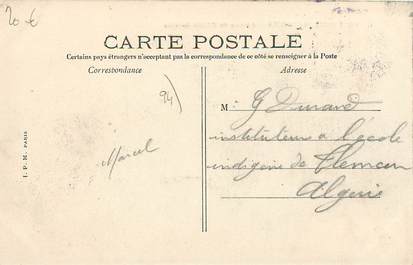 20 €
CARTE POSTALE
Certains pays étrangers n'acceptant pas la correspondance de ce côté se renseigner à la Poste
Correspondance
Adresse
94)
Marcel
M. G Durand
instituteur a l'école
indigène de Tlemcen
Algérie
I. P. M. PARIS